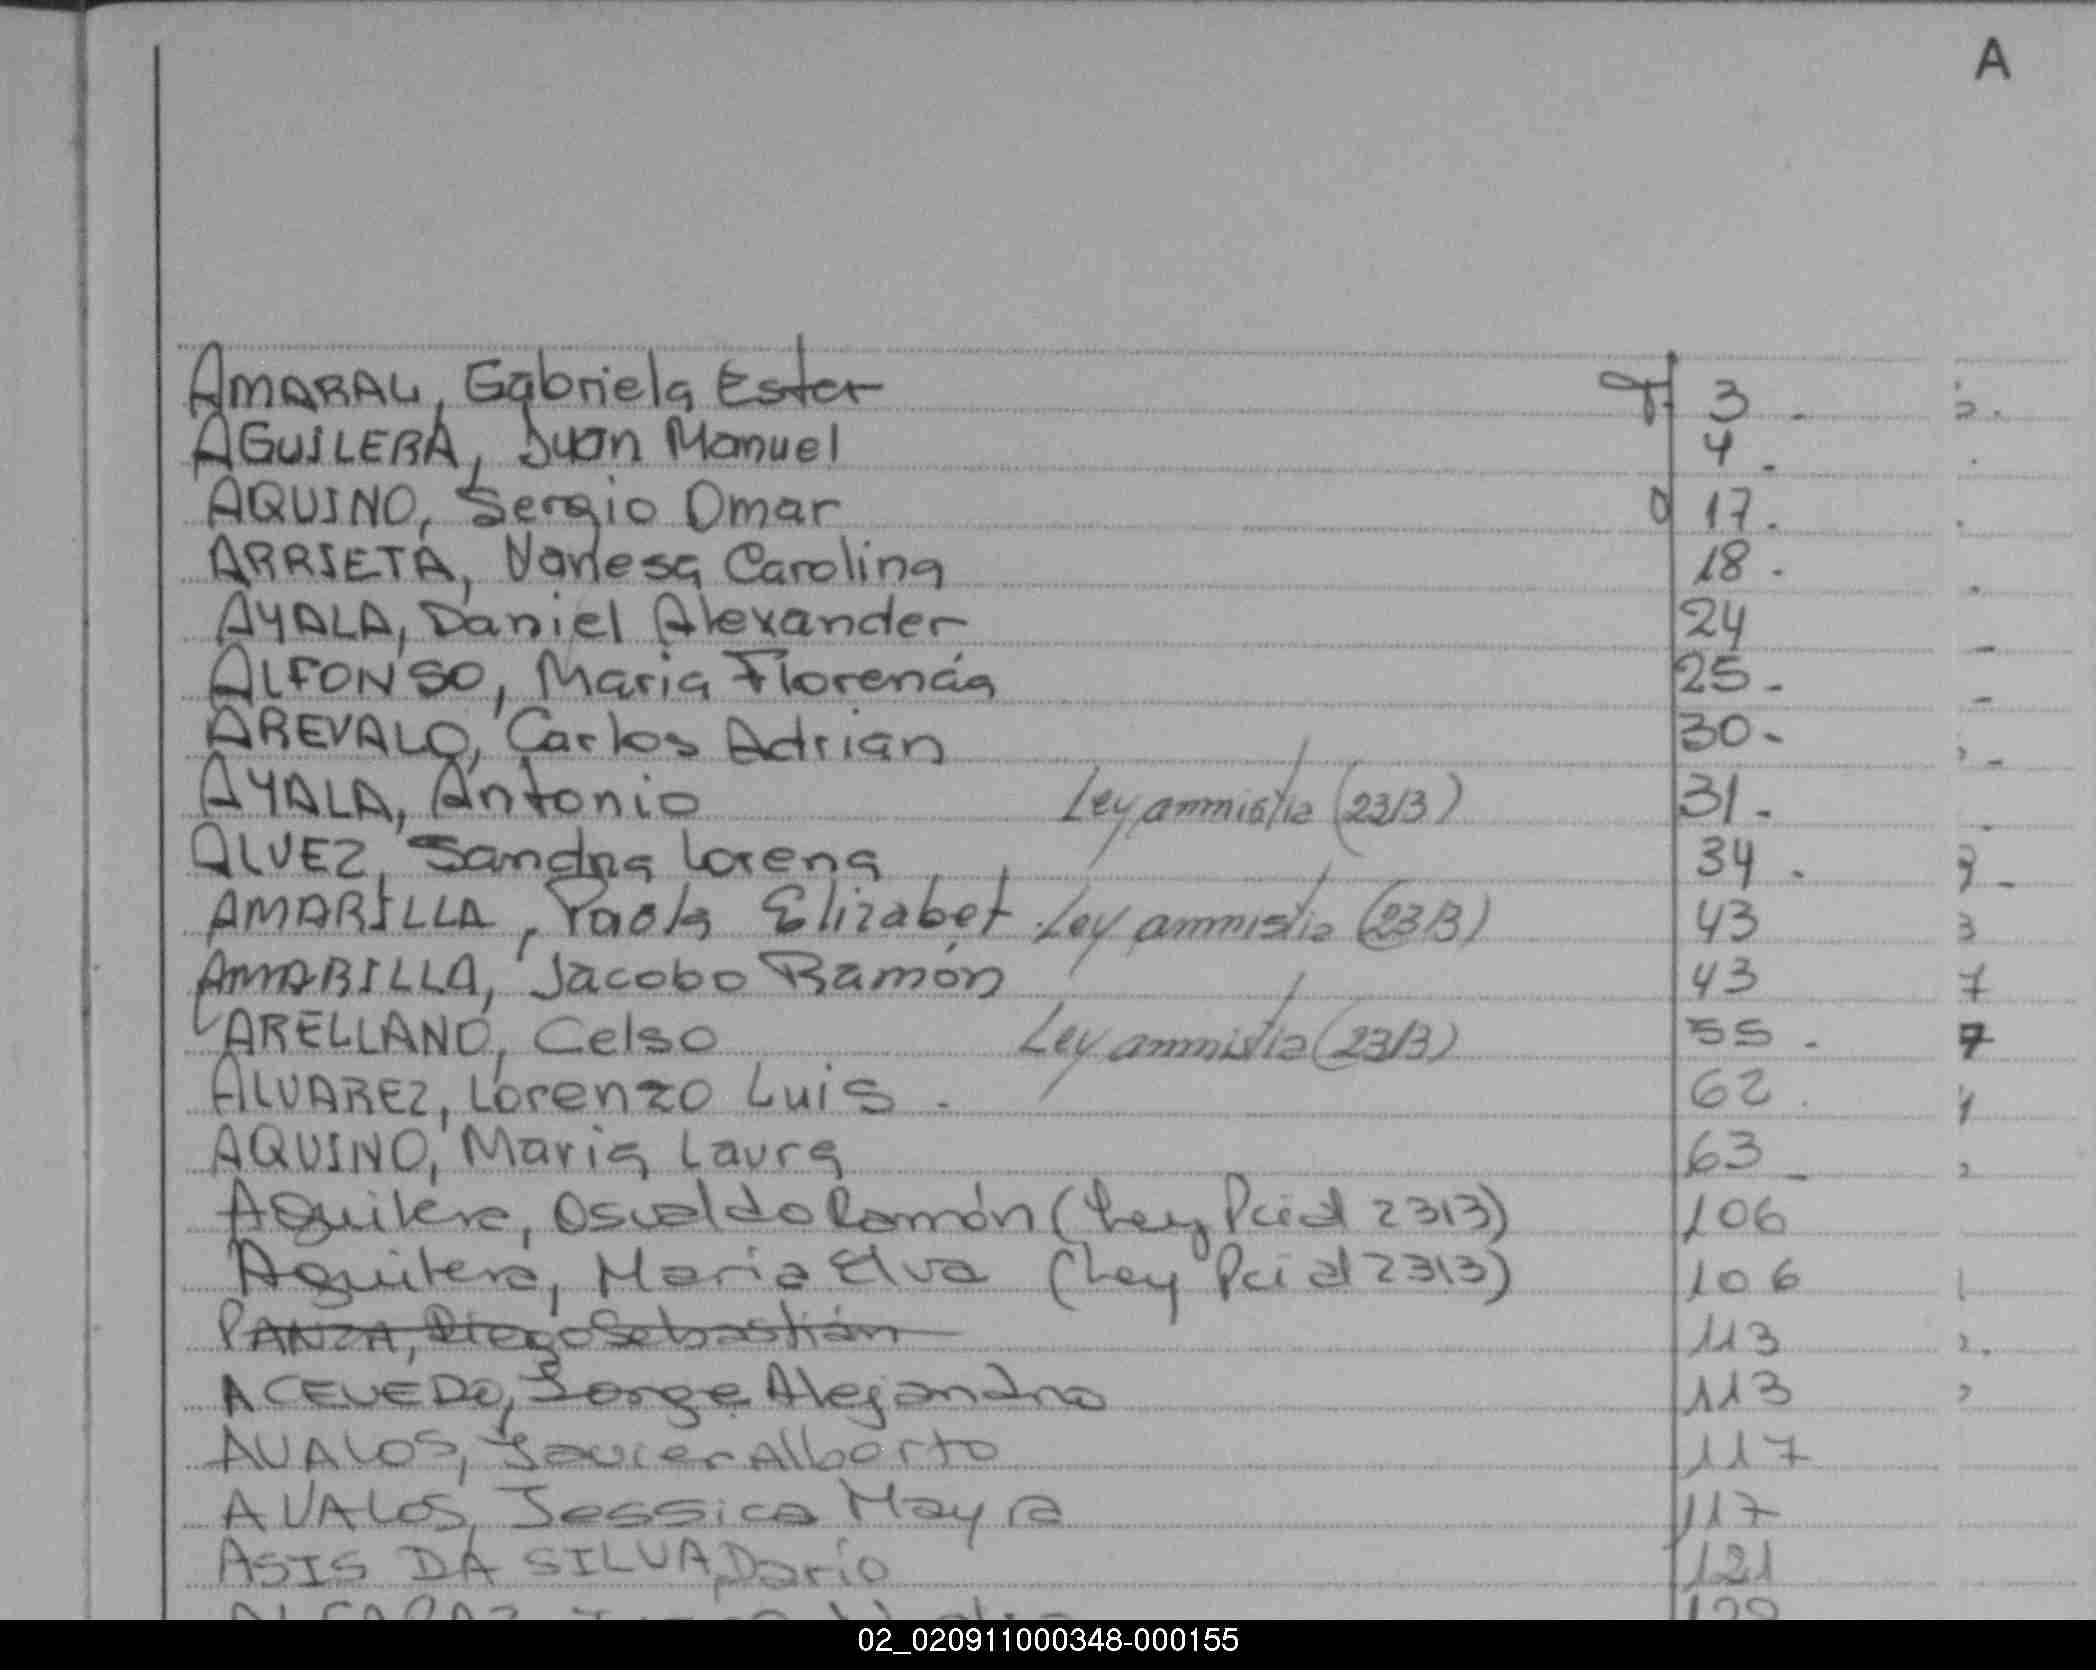 A
AMARAL, Gabriela Ester F 3.
AGUILERA, Juan Manuel 4.
AQUINO, Sergio Omar 0 17.
ARRIETA, Vanesa Carolina 18.
AYALA, Daniel Alexander 24
ALFONSO, Maria Florencia 25.
AREVALO, Carlos Adrian 30.
AYALA, Antonio Ley ammistia (23/3) 31.
ALVEZ, Sandra Lorena 34.
AMARILLA, Paola Elizabet. Ley ammistia (23/3) 43
AMARILLA, Jacobo Ramón 43
ARELLANO, Celso Ley ammistia (23/3) 55.
ALVAREZ, Lorenzo Luis. 62.
AQUINO, Maria Laura 63
Aguilera, Osvaldo Ramón (Ley Pcial 2313) 106
Aguilera, Maria Elva (Ley Pcial 2313) 106
PANZA, Diego Sebastián 113
ACEVEDO, Jorge Alejandro 113
AVALOS, Javier Alberto 117
AVALOS, Jessica Mayra 117
ASIS DA SILVA, Darío 121
02_020911000348-000155